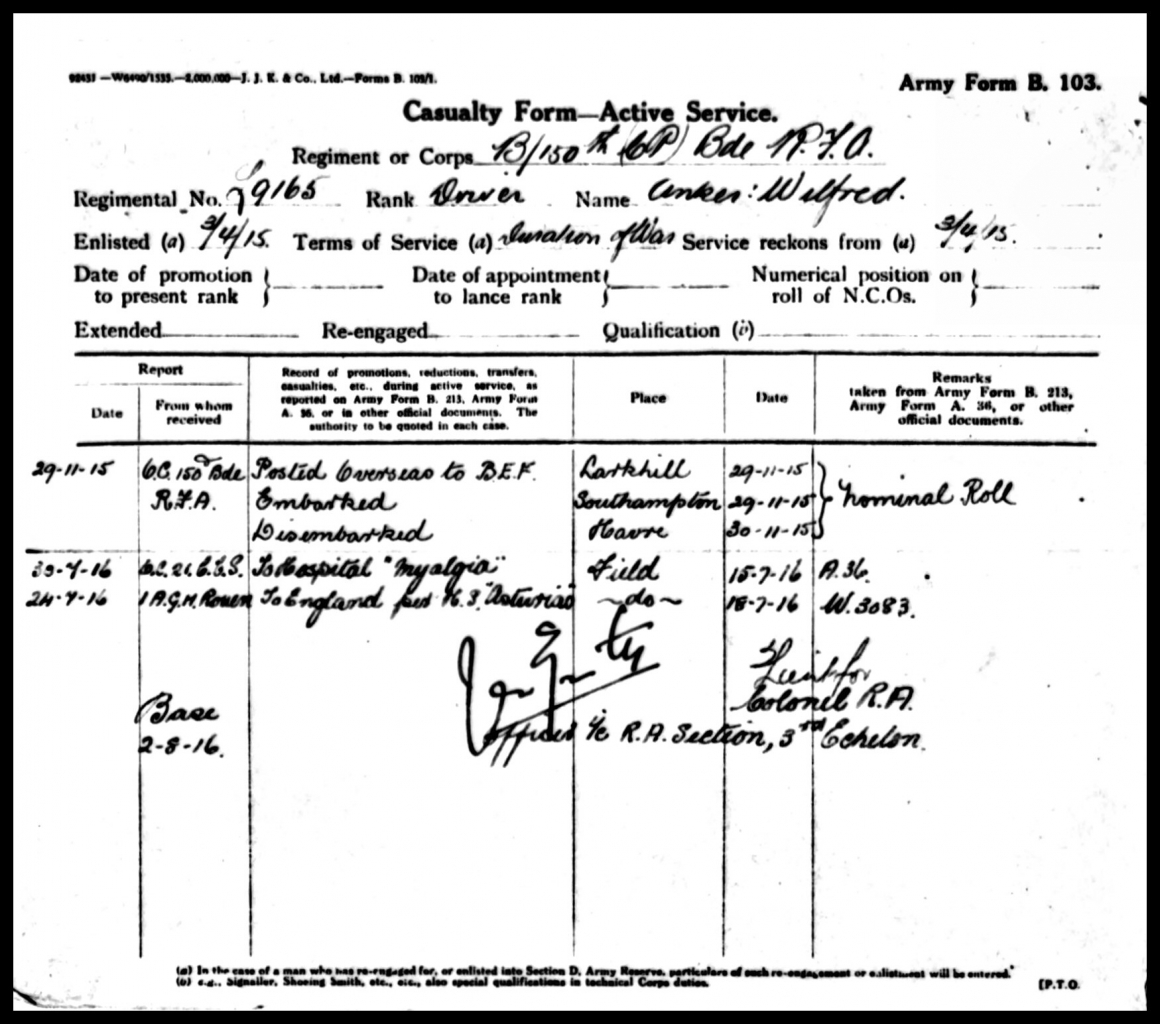 Army Form B. 103.
Casualty Form—Active Service.
Regiment or Corps B/150th (CP) Bde R.F.A.
Regimental No. 9165 Rank Driver Name Wilfred.
Enlisted (a) 3/4/15. Terms of Service (a) Duration of War Service reckons from (a) 3/4/15.
Date of promotion to present rank
Date of appointment to lance rank
Numerical position on roll of N.C.Os.
Extended Re-engaged Qualification (b)
Report
Date
From whom received
Record of promotions, reductions, transfers,
casualties, etc., during active service, as
reported on Army Form B. 213, Army Form
A. 36, or in other official documents. The
authority to be quoted in each case.
Place
Date
Remarks
taken from Army Form B. 213,
Army Form A. 36, or other
official documents.
29-11-15 O.C. 150th Bde Posted Overseas to B.E.F. Larkhill 29-11-15
R.F.A. Embarked Southampton 29-11-15 Nominal Roll
Disembarked Havre 30-11-15
O.C. 21. C.C.S. To Hospital "Myalgia" Field 15-7-16 A.36.
24-7-16 Rouen To England per H.S. "Asturias" ~do~ 18-7-16 W.3083.
Lieut for
Base Colonel R.A.
2-8-16. Officer i/c R.A. Section, 3rd Echelon.
(a) In the case of a man who has re-engaged for, or enlisted into Section D, Army Reserve, particulars of such re-engagement or enlistment will be entered.
(b) e.g., Signaller, Shoeing Smith, etc., etc., also special qualifications in technical Corps duties.
[P.T.O.